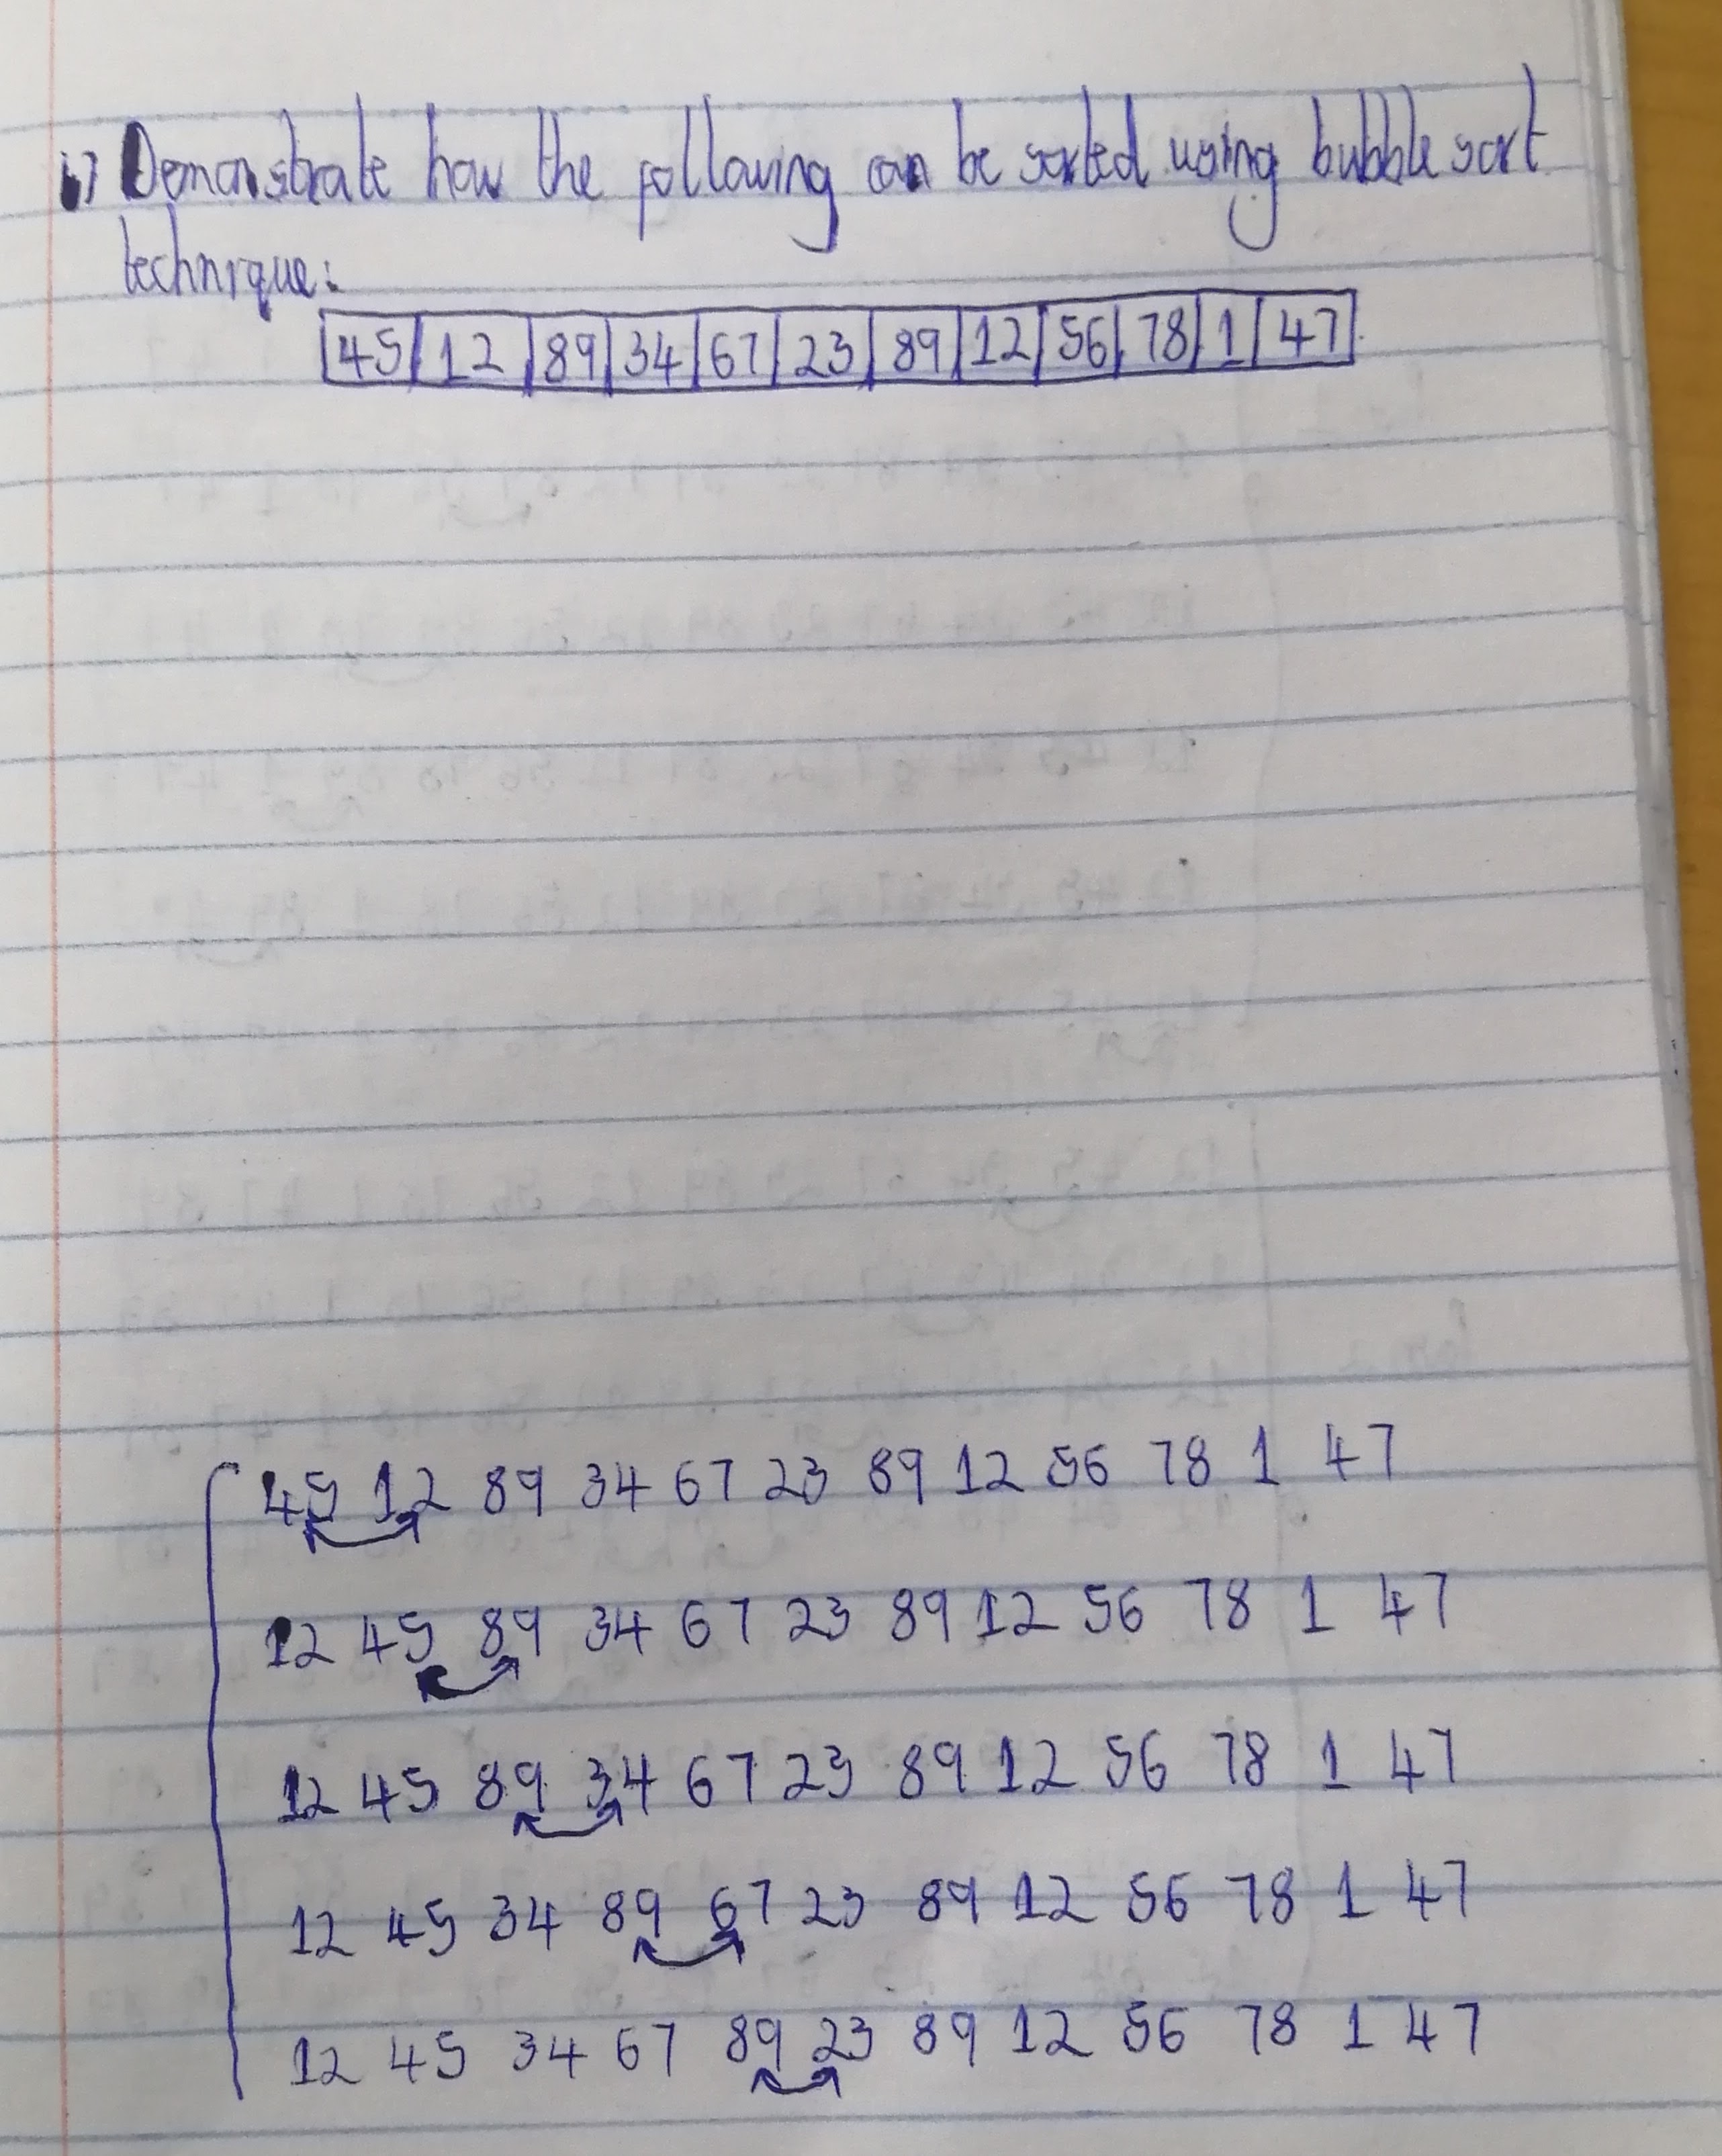 i) Demonstrate how the following can be sorted using bubble sort
technique:
45 12 89 34 67 23 89 12 56 78 1 47
45 12 89 34 67 23 89 12 56 78 1 47
12 45 89 34 67 23 89 12 56 78 1 47
12 45 89 34 67 23 89 12 56 78 1 47
12 45 34 89 67 23 89 12 56 78 1 47
12 45 34 67 89 23 89 12 56 78 1 47